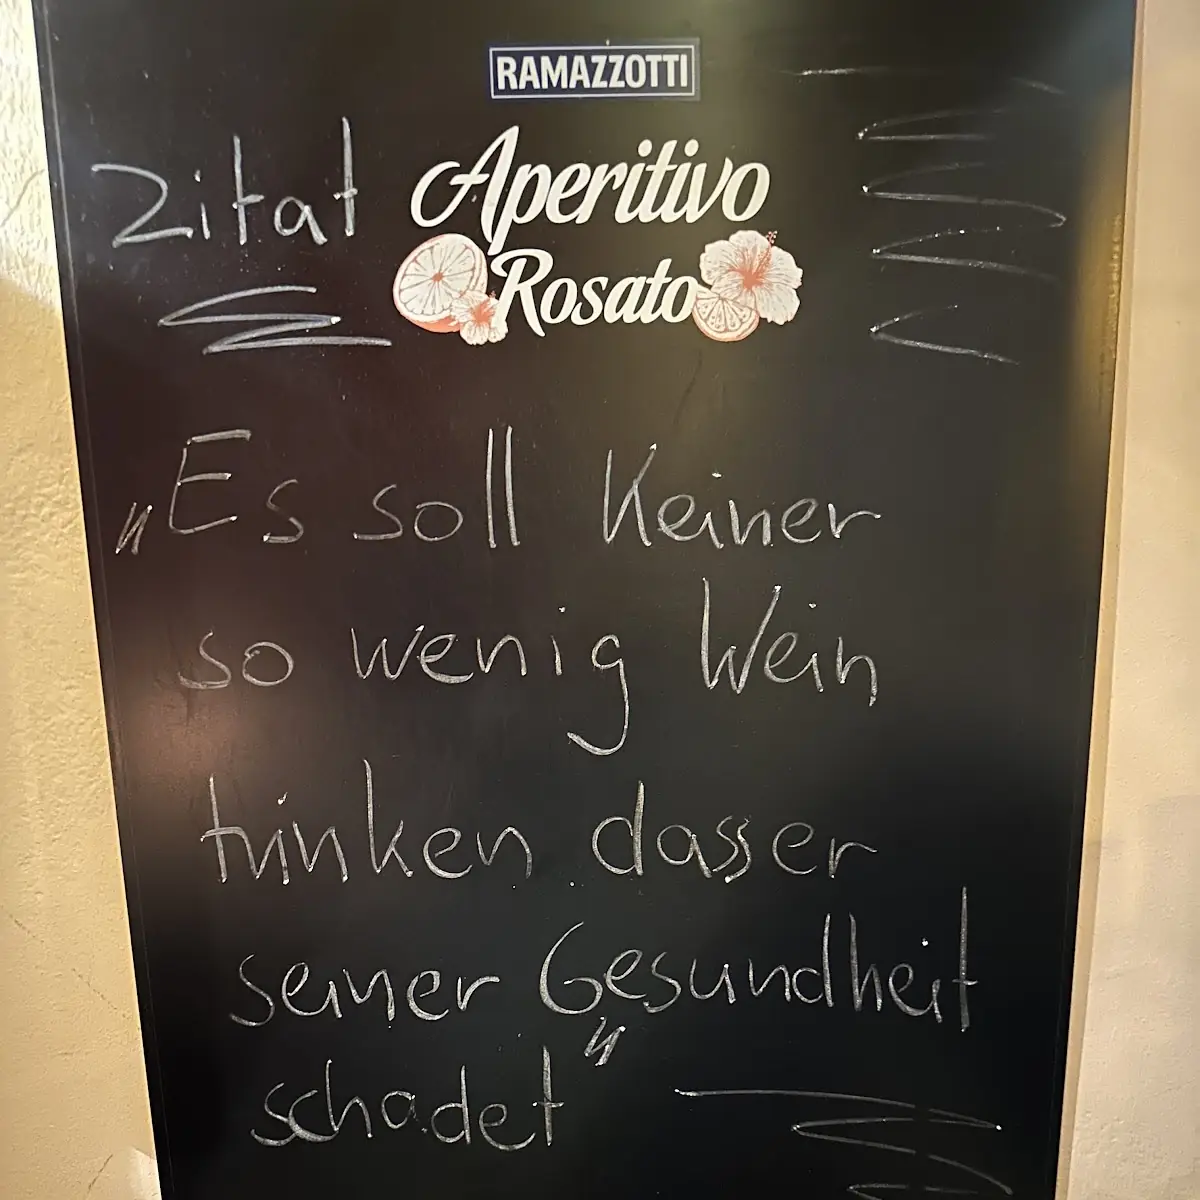 RAMAZZOTTI
Zitat
Aperitivo
Rosato
„Es soll Keiner
so wenig Wein
trinken dass er
seiner Gesundheit
schadet"